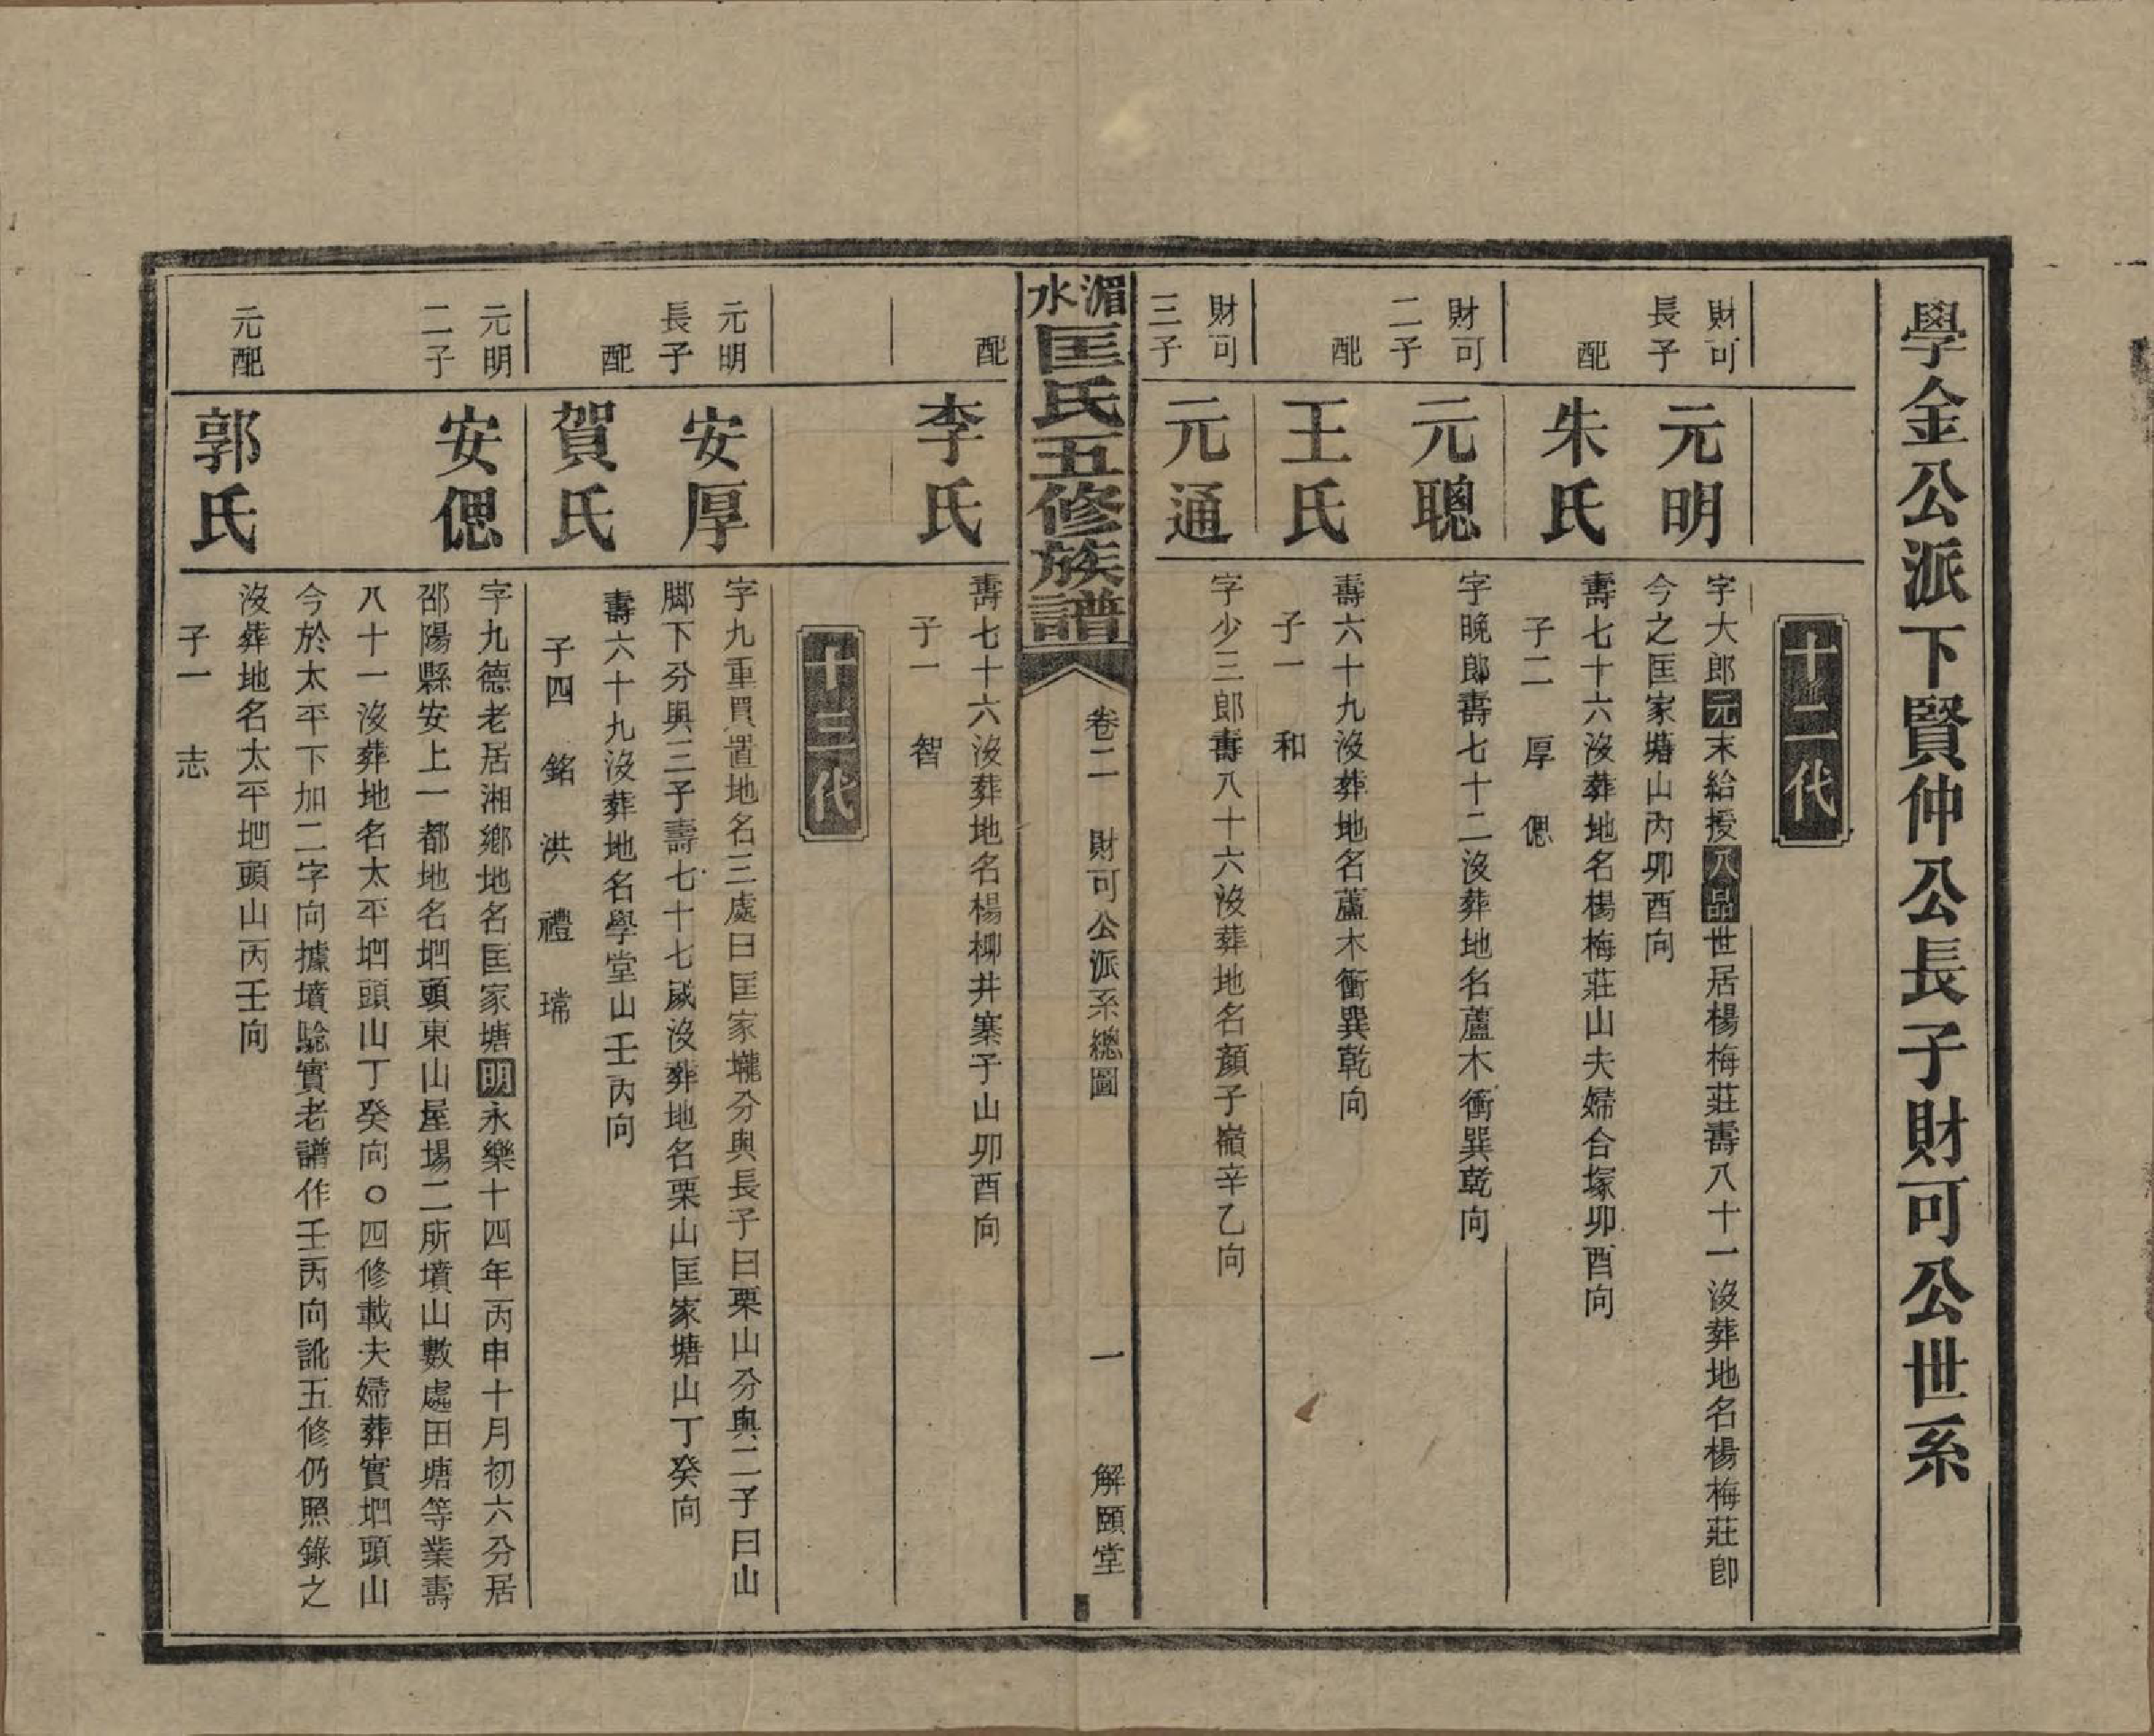 學金公派下賢仲公長子財可公世系
十二代
財可
長子
元明
字大郎元末給授八品世居楊梅莊壽八十一沒葬地名楊梅莊卽
今之匡家塘山內卯酉向
配
朱氏
壽七十六沒葬地名楊梅莊山夫婦合塚卯酉向
子二 厚 偲
財可
二子
元聰
字晚郎壽七十二沒葬地名蘆木衝巽乾向
配
王氏
壽六十九沒葬地名蘆木衝巽乾向
子一 和
財可
三子
元通
字少三郎壽八十六沒葬地名顏子嶺辛乙向
湄水匡氏五修族譜
卷二 財可公派系總圖 一 解頤堂
配
李氏
壽七十六沒葬地名楊柳井寨子山卯酉向
子一 智
十三代
元明
長子
安厚
字九重買置地名三處曰匡家壠分與長子曰栗山分與二子曰山
脚下分與三子壽七十七歲沒葬地名栗山匡家塘山丁癸向
配
賀氏
壽六十九沒葬地名學堂山壬丙向
子四 銘 洪 禮 瑺
元明
二子
安偲
字九德老居湘鄉地名匡家塘明永樂十四年丙申十月初六分居
邵陽縣安上一都地名垇頭東山屋場二所墳山數處田塘等業壽
八十一沒葬地名太平垇頭山丁癸向○四修載夫婦葬實垇頭山
今於太平下加二字向據墳驗實老譜作壬丙向訛五修仍照錄之
元配
郭氏
沒葬地名太平垇頭山丙壬向
子一 志